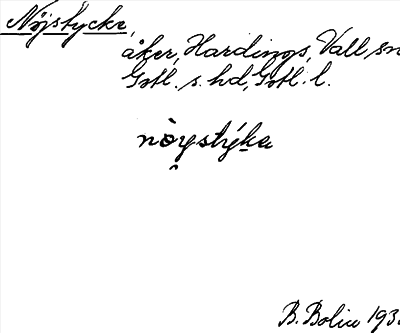 Nöjstycke,
åker, Hardings, Vall sn
Gotl. s. hd, Gotl. l.
nòystýka
B. Bolin 193